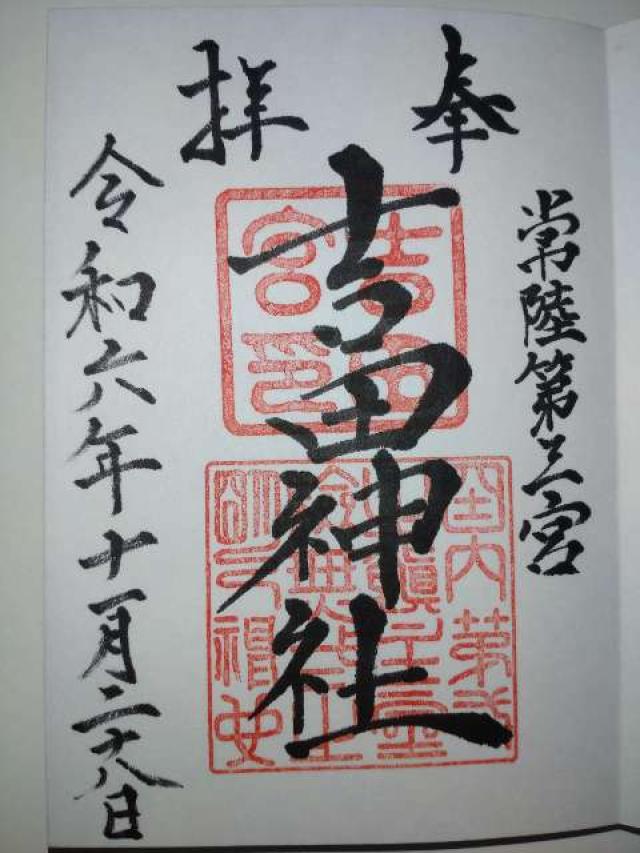 奉拝
常陸第三宮
吉田神社
令和六年十一月二十八日
吉田宮印